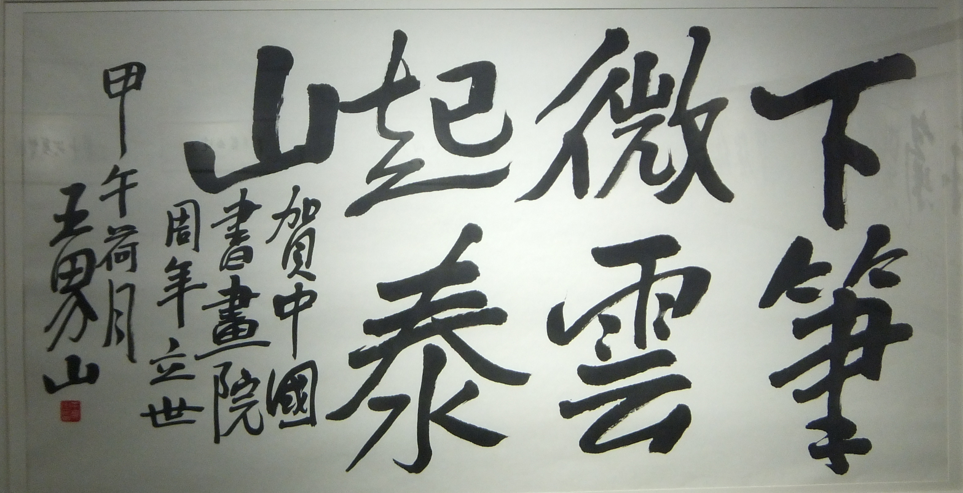 下筆
微雲
起泰
山
賀中國
書畫院
周年立世
甲午荷月
王男山